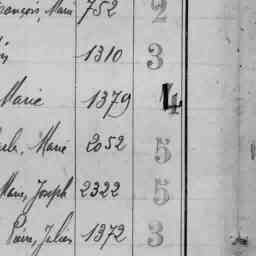 François, Marie 752 2
1310 3
Marie 1379 4
Marie 2052 5
Marie, Joseph 2322 5
Pierre, Julien 1372 3